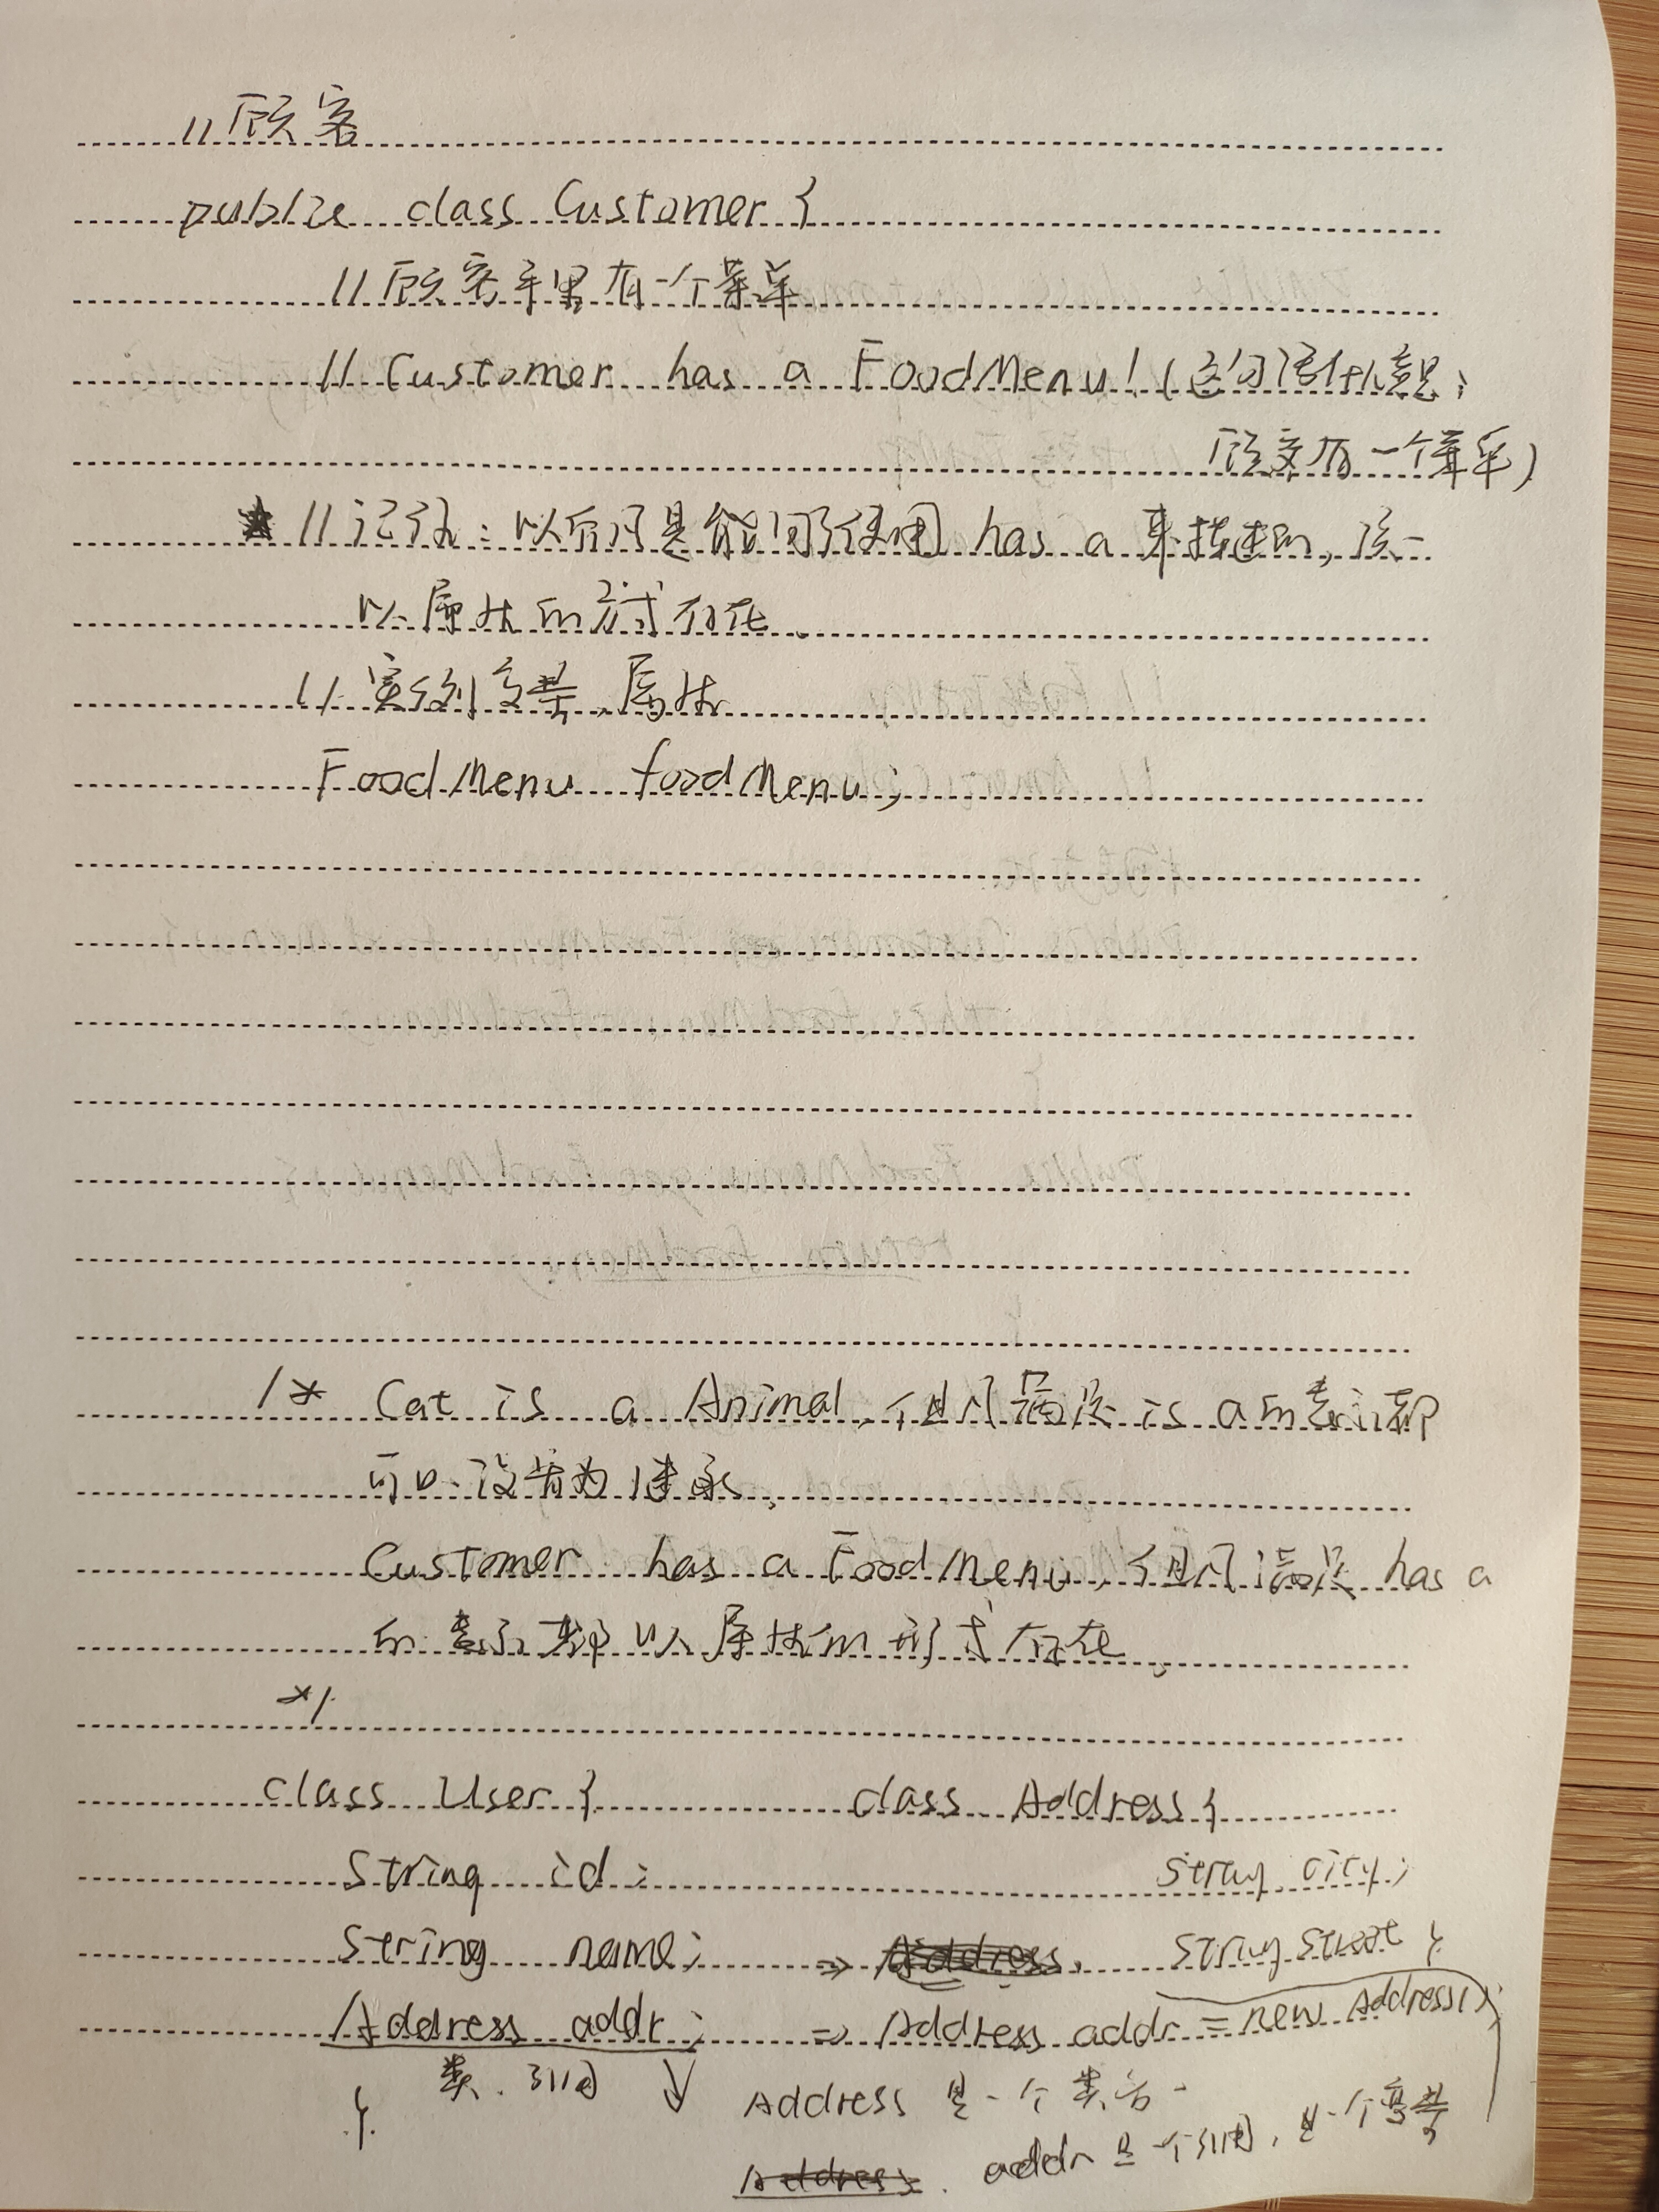 //顾客
public class Customer {
//顾客手里有一个菜单
// Customer has a FoodMenu! (这句话什么意思:
顾客有一个菜单)
★ //记住: 以后凡是能够使用 has a 来描述的, 统一
以属性的方式存在.
// 实例变量, 属性
FoodMenu foodMenu;
/* Cat is a Animal, 但凡满足 is a 的表示都
可以设置为继承.
Customer has a FoodMenu, 但凡满足 has a
的表示都以属性的形式存在.
*/
class User { class Address {
String id; String city;
String name; ⇒ String street }
Address addr; ⇒ Address addr = new Address();
类. 引用 ↓ Address 是一个类名
} addr 是一个引用, 是一个变量